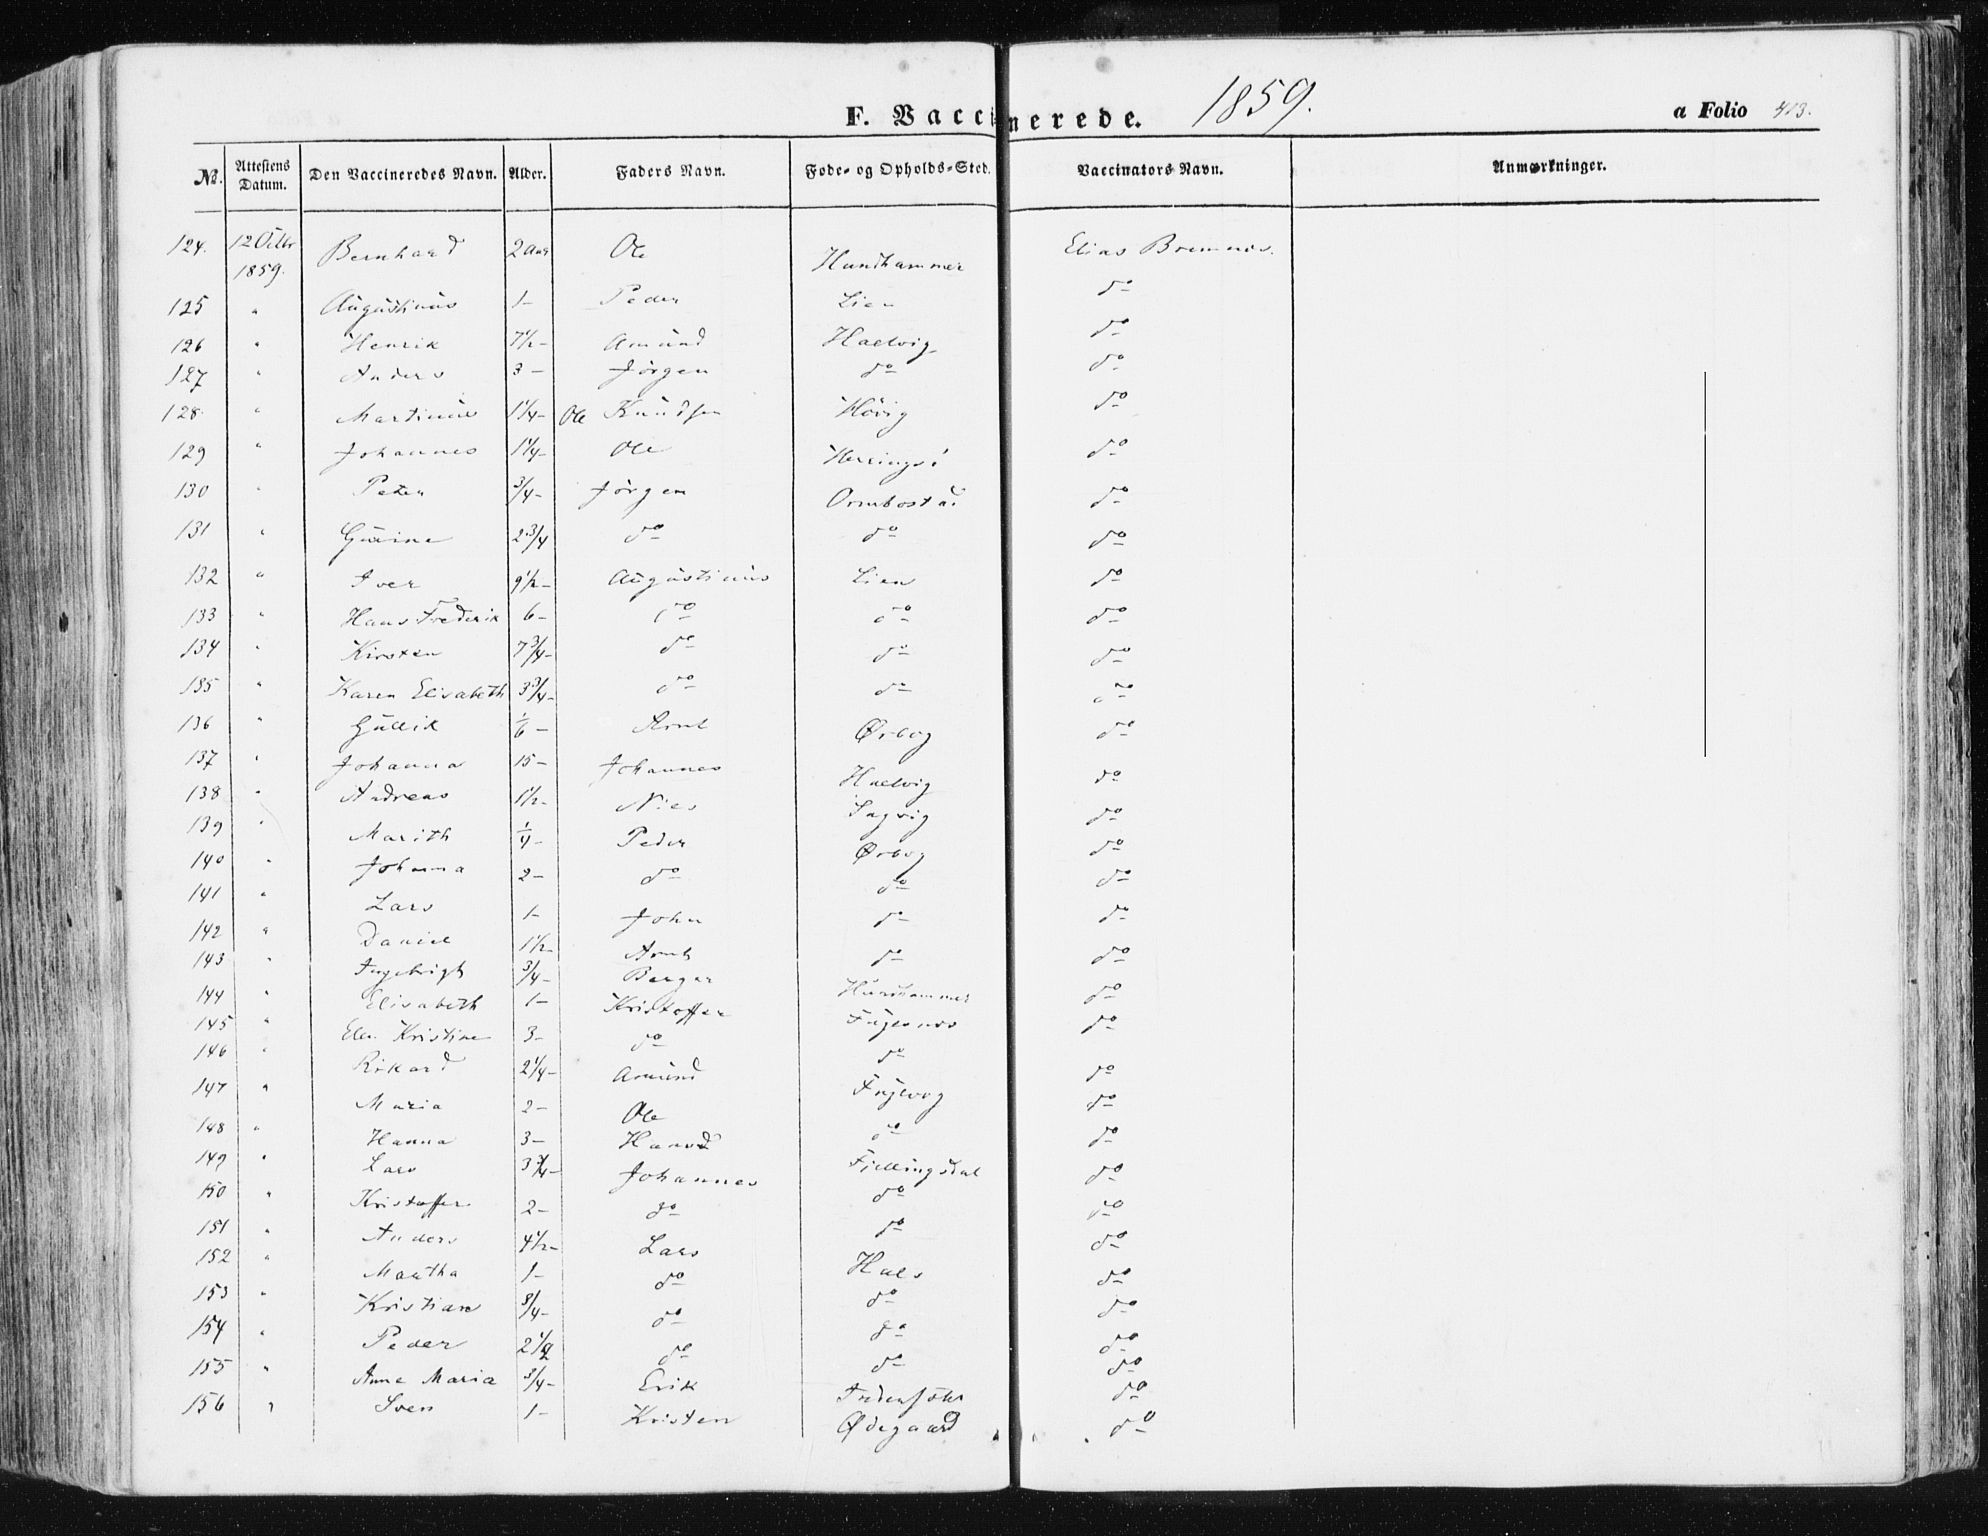 F. Vaccinerede. 1859. a Folio 413.
No. Attestens Datum. Den Vaccineredes Navn. Alder. Faders Navn. Føde- og Opholds-Sted. Vaccinators Navn. Anmærkninger.
124. 12 Octbr 1859. Bernhard 2 Aar Ole Hundhammer Elias Bremnes.
125 " Augustinus 1- Peder Lien do
126 " Henrik 7 1/2- Amund Haelvig do
127 " Anders 3- Jörgen do do
128 " Martinus 1 1/4- Ole Knudsen Hövig do
129 " Johannes 1 1/4- Ole Herringsö do
130 " Peter 3/4- Jörgen Ormbostad do
131 " Gurine 2 3/4 do do do
132 " Iver 9 1/2- Augustinus Lien do
133 " Hans Frederik 6- do do do
134 " Kirsten 7 3/4- do do do
135 " Karen Elisabeth 3 3/4- do do do
136 " Gullik 1/6- Arnt Ørbog do
137 " Johanna 15- Johannes Haelvig do
138 " Andreas 1 1/2- Niels Sagvig do
139 " Marith 1/4- Peder Ørbog do
140 " Johanna 2- do do do
141 " Lars 1- John do do
142 " Daniel 1 1/2- Arnt do do
143 " Ingebrigt 3/4- Berger Hundhammer do
144 " Elisabeth 1- Kristoffer do
145 " Elen Kristine 3- do do do
146 " Rikard 2 1/4- Amund Fuglvog do
147 " Maria 2- Ole do do
148 " Hanna 3- Hans Fjellingsdal do
149 " Lars 3 3/4- Johannes do do
150 " Kristoffer 2- do do do
151 " Anders 4 1/2- Lars Hals do
152 " Martha 1- do do do
153 " Kristian 3/4- do do do
154 " Peder 2 1/2 do do do
155 " Anne Maria 3/4- Erik do
156 " Sven 1- Kristen Ødegaard do